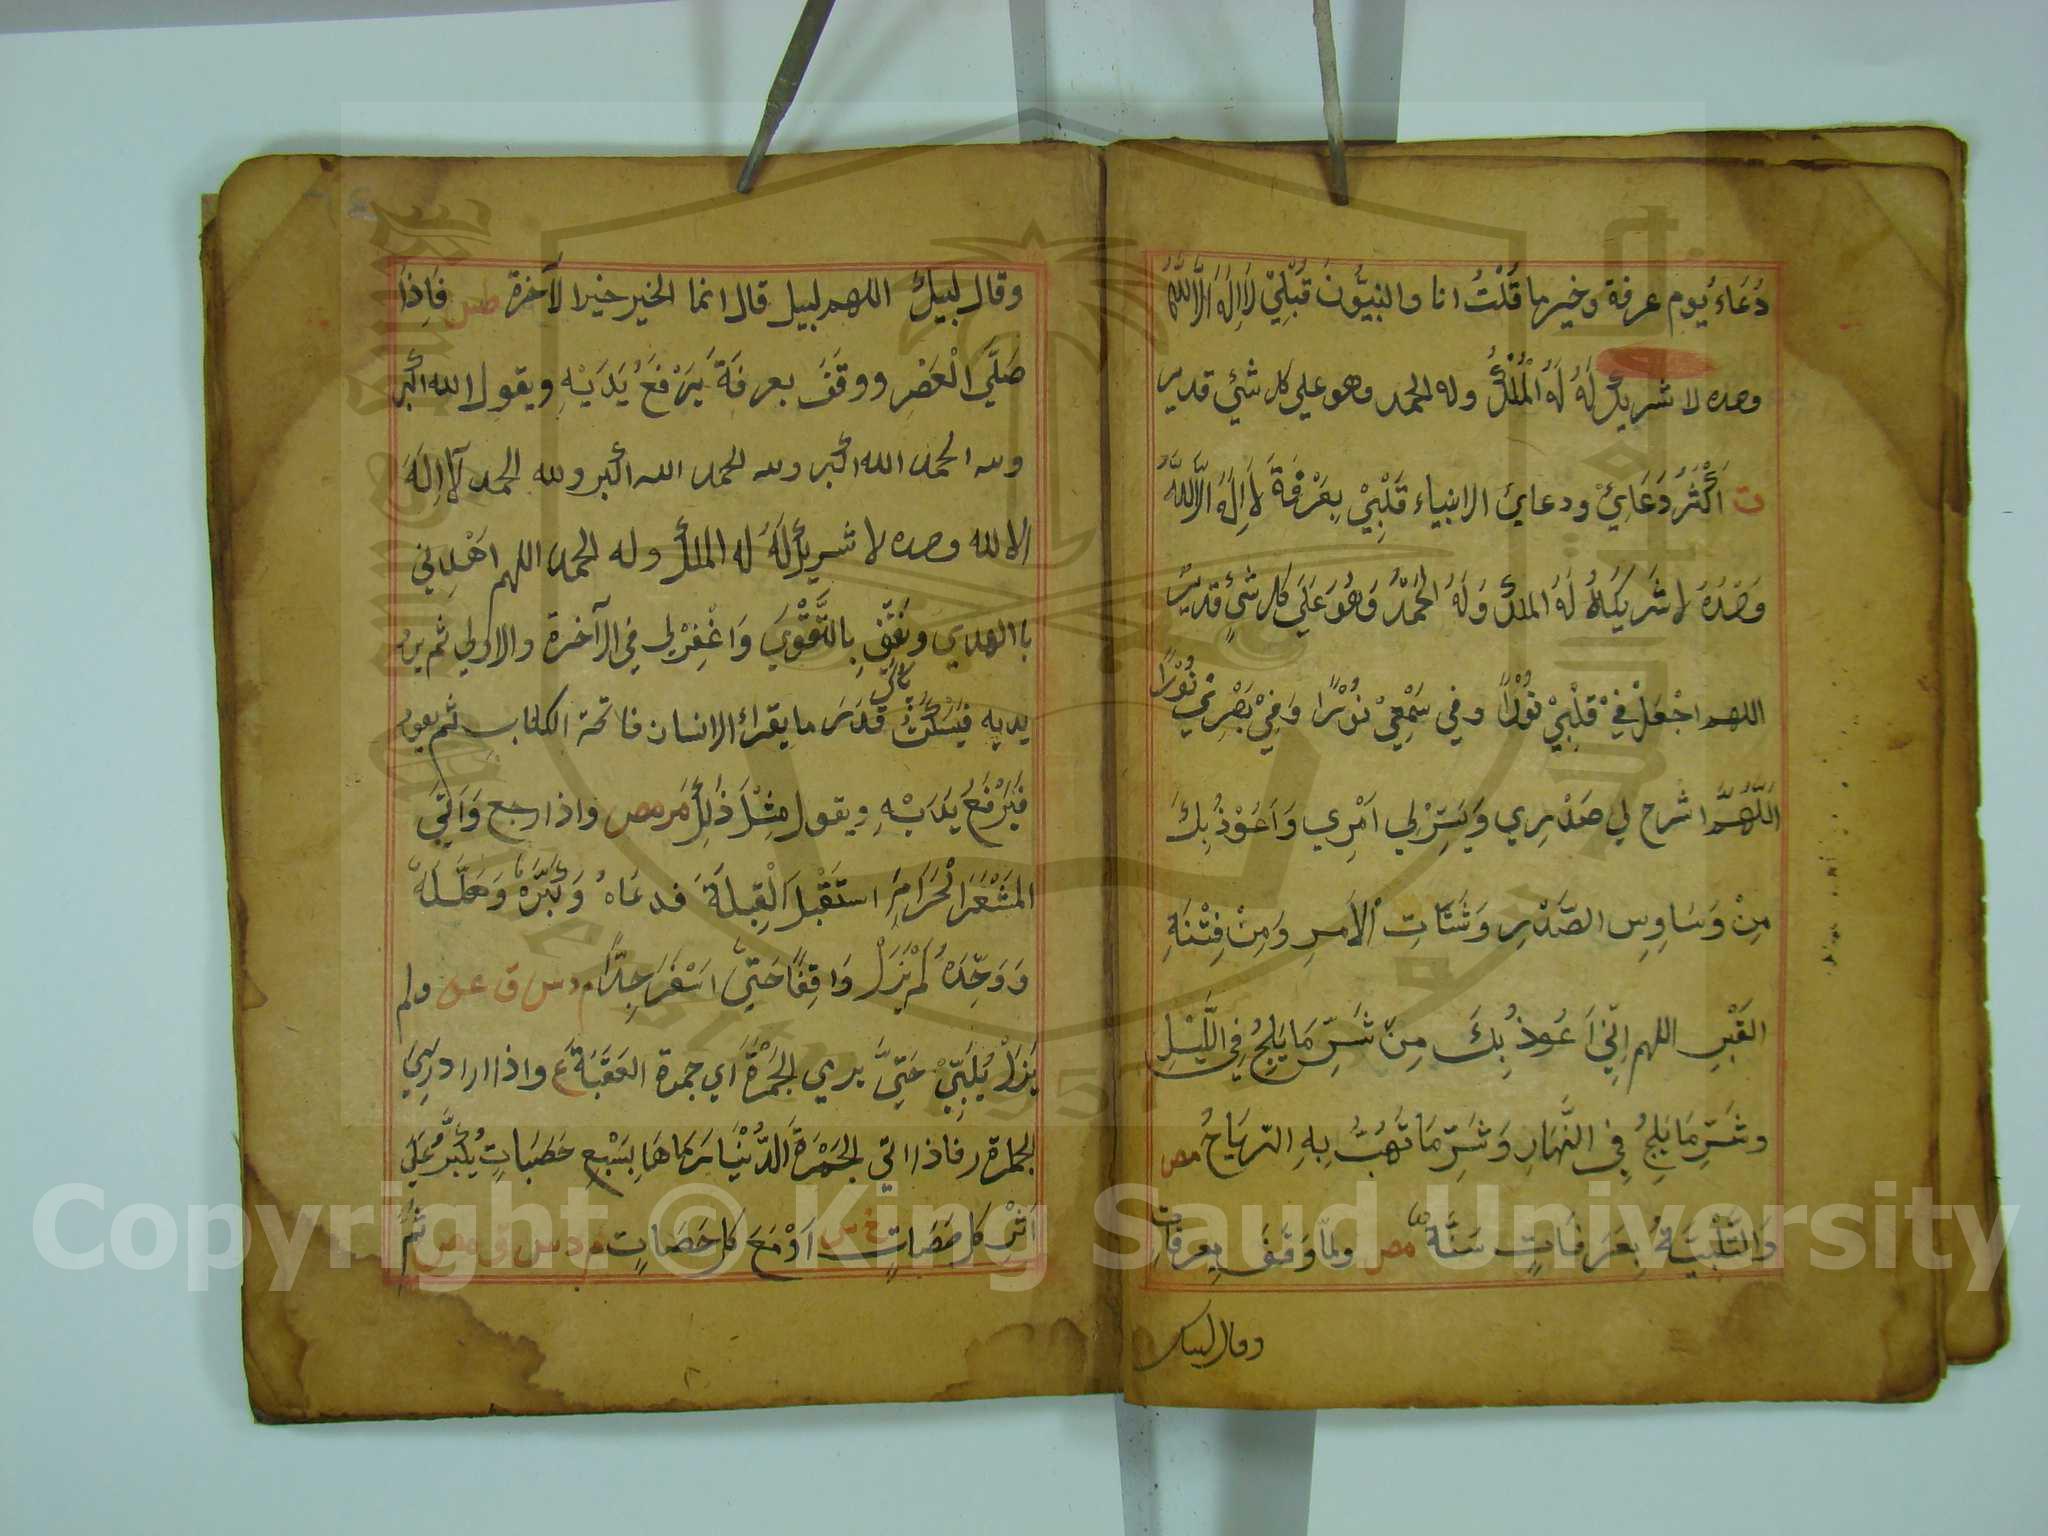 دُعَاءُ يوم عرفة وخير ما قُلْتُ انا والنبيُّونَ قَبْلِيْ لَا اِلٰهَ اِلَّا اللهُ
وحده لا شريكَ لَهُ لَهُ الْمُلْكُ وله الحمد وهو علي كل شئ قدير
ت اَكْثَرُ دَعَايِْ ودعايُ الانبياء قَبْلِيْ بِعَرْفَةَ لَا اِلٰهَ اِلَّا اللهُ
وَحْدَهُ لا شَرِيكَ لَهُ لَهُ الملكُ وَلَهُ الحَمْدُ وَهُوَ عَلَي كل شئٍ قديرٌ
اللهم اجْعَلْ فِيْ قَلْبِيْ نُوْرًا وفي سَمْعِيْ نُوْرًا وَفِيْ بَصْرِيْ نُوْرًا
اَللّٰهُمَّ اشرح لي صَدْرِي وَيَسِّرْ لي اَمْرِي وَاَعُوْذُ بِكَ
مِنْ وَسَاوِسِ الصَّدْرِ وَشَتَاتِ الْاَمرِ وَمِنْ فِتْنَةِ
القَبْرِ اللهم اِنِّي اَعُوذُ بِكَ مِنْ شَرِّ مَا يَلِجُ فِي الَّيْلِ
وشَرِّ مَا يَلِجُ فِي النَّهَارِ وَشَرِّ مَا تَهُبُّ بِهِ الرِّيَاحُ مص
وَالتَّلْبِيَةُ بِعَرَفَاتٍ سَنَّةٌ س مص ولمّا وَقَفَ بِعرفاتٍ
وقال لبيك
وقال لبيك اللهم لبيك قال انما الخير خير الآخرة طس فَاِذَا
صَلَّي الْعَصْرِ ووقَفَ بعرفَةَ يَرْفَعُ يَدَيْهِ ويقول الله اكبر
ولله الحمد الله اكبر ولله الحمد الله اكبر ولله الحمد لَا اِلٰهَ
الا الله وحده لا شريكَ لَهُ له الملك وله الحمد اللهم اهْدِنِي
بالهدي ونَقِّنِي بِالتَّقْوَي وَاغْفِرْ لِي فِي الآخرة والاولي ثم يرد
يديه فَيَسْكُتُ قَدَرَ ما يقرائ الانسان فاتحة الكتاب ثم يعود
فَيَرْفَعُ يَدَيْهِ ويقول مِثْلَ ذٰلِكَ مر مص واذا رجع وَاَتَي
المَشْعَرَ الْحَرَامَ استَقْبَلَ الْقِبلَةَ فدعَاهُ وَكَبَّرَهُ وَهَلَّلَهُ
وَوَحَّدَهُ لَمْ يَزَلْ وَاقِفًا حَتَّي اَسْفَرَ جِدًّا م د س ق عو ولم
يَزَلْ يُلَبِّيْ حَتَّي يرمي الجَمْرَةَ اَي جمرة العَقَبَةَ ع واذا اراد رمي
الجمرة رفاذا اتي الجَمْرَةَ الدُّنْيَا رَمَاهَا بسَبْعِ حَصَيَاتٍ يُكَبِّرُ عَلَي
اَثْرِ كل حَصَياتٍ خ س اَوْ مَعَ كل حَصَياتٍ م د س ق مص ثمَّ
Copyright © King Saud University